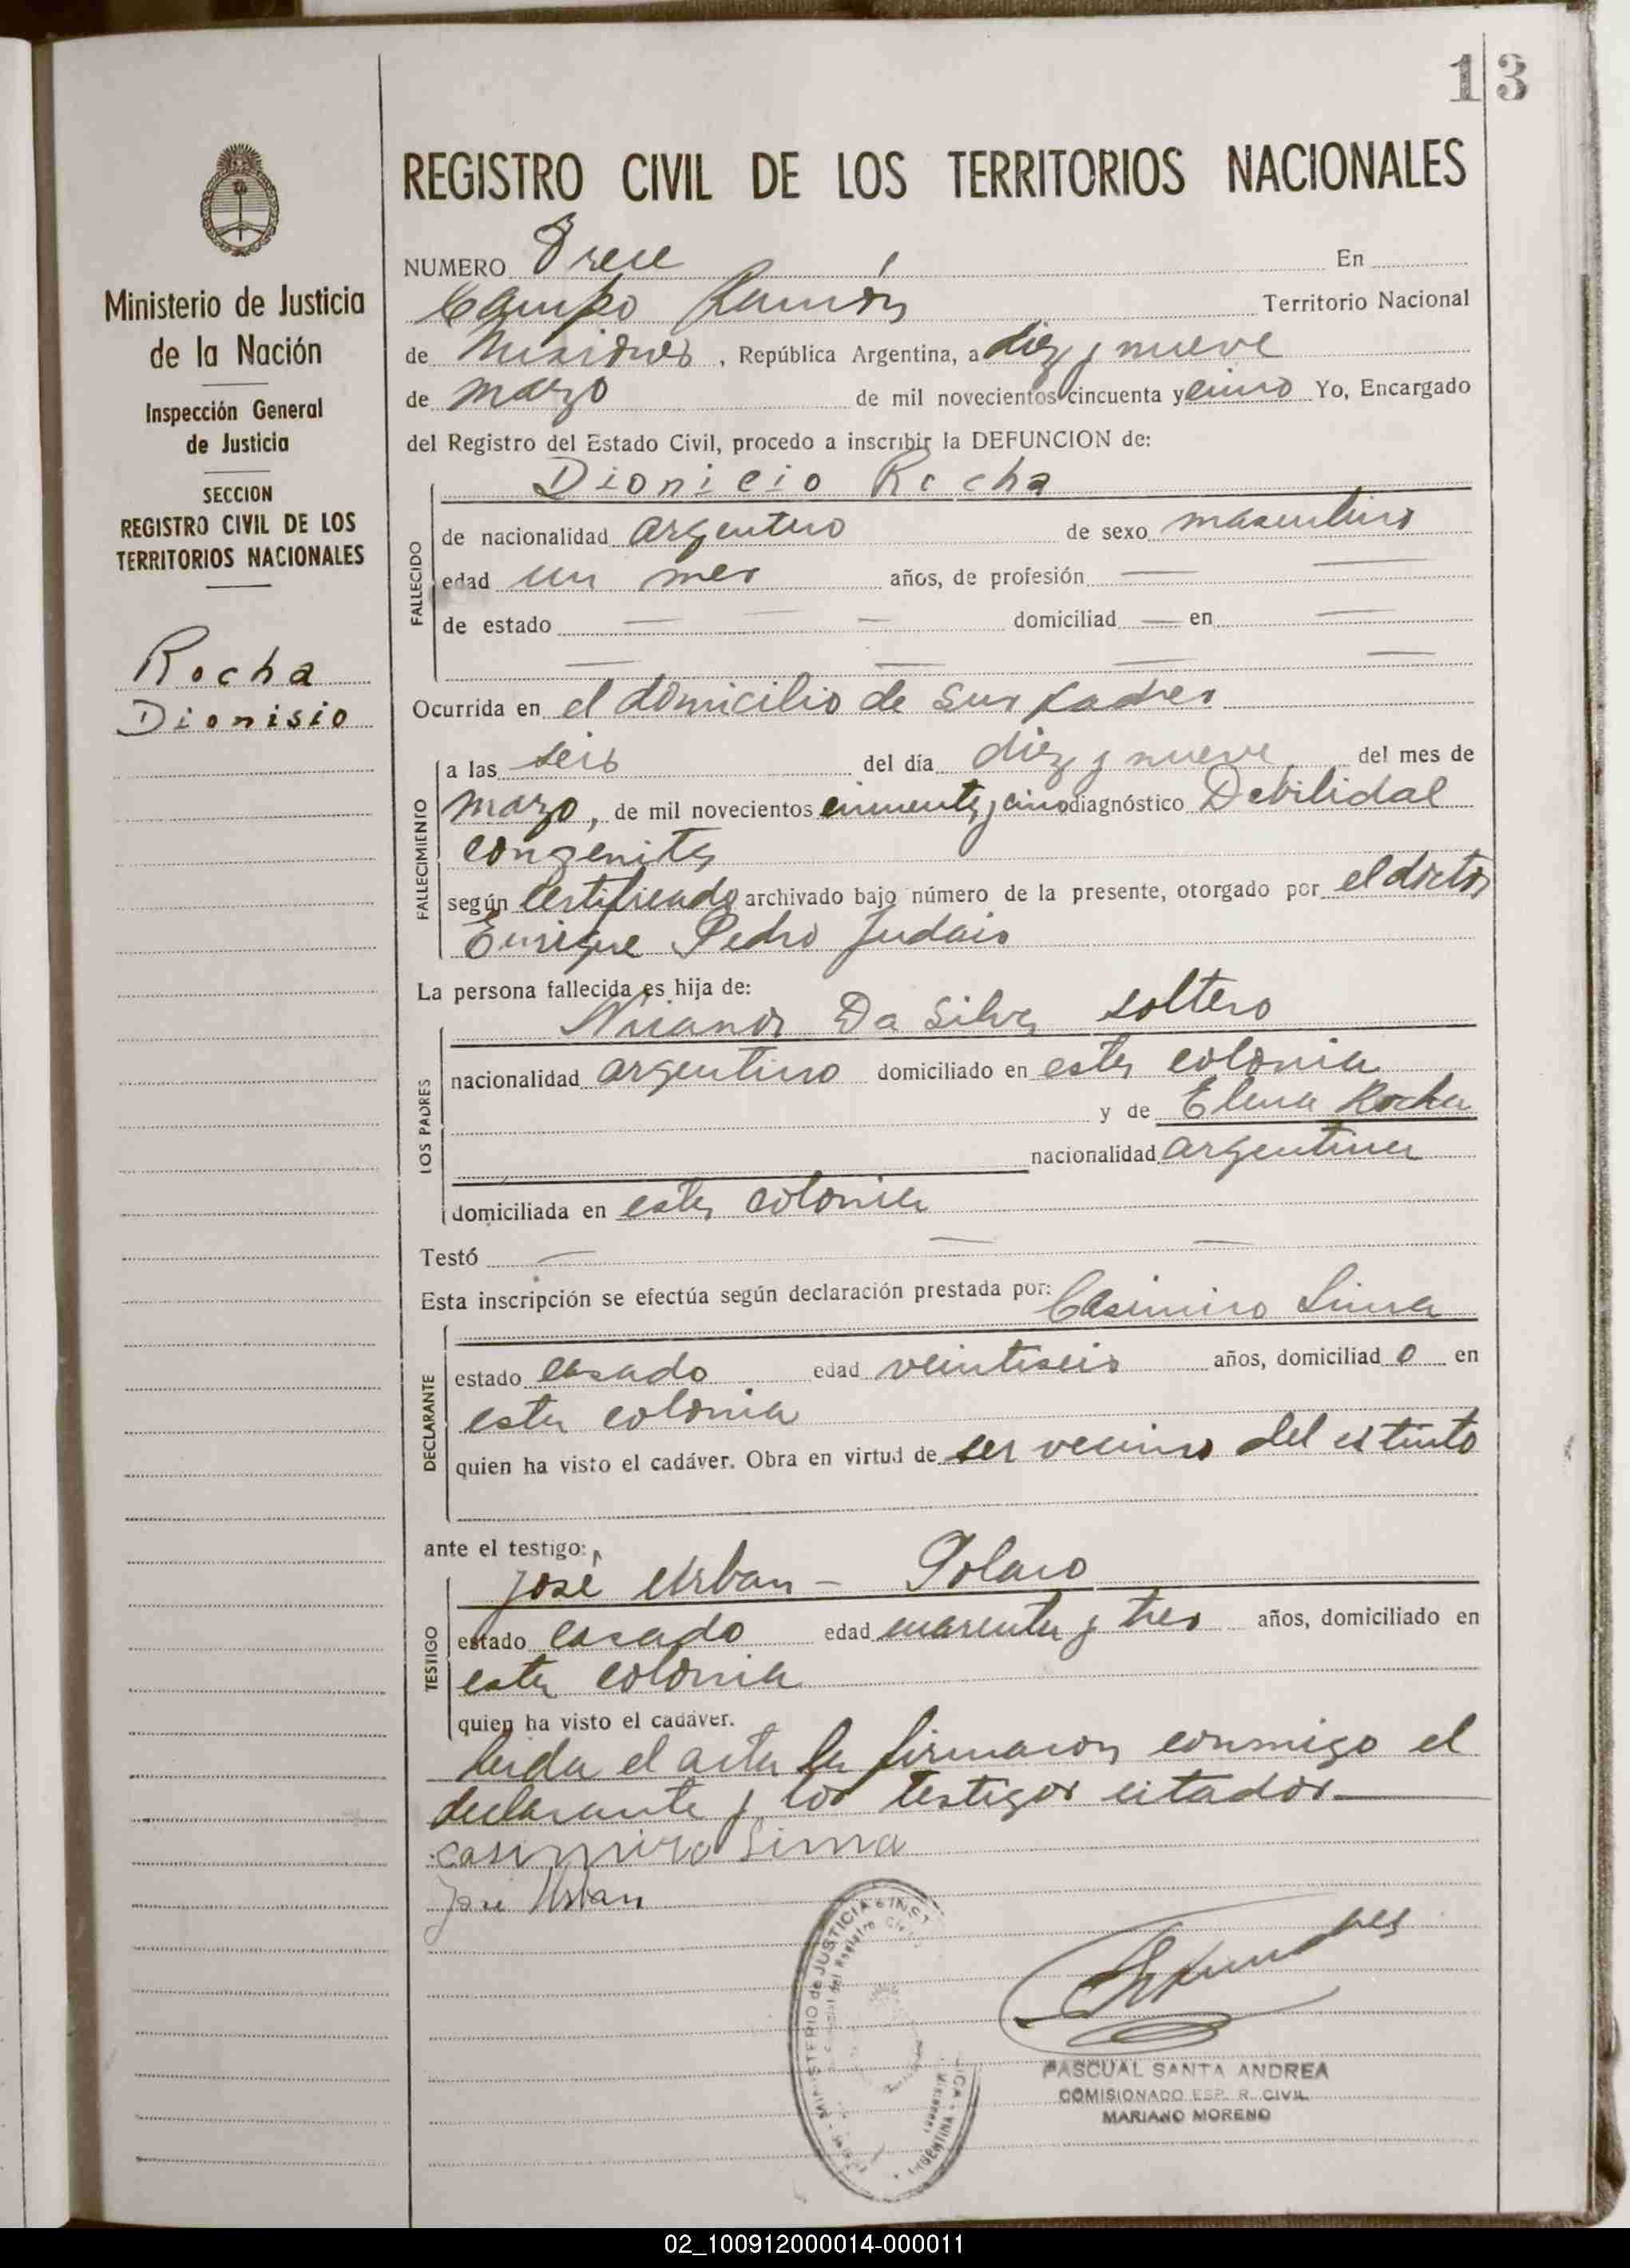 13
REGISTRO CIVIL DE LOS TERRITORIOS NACIONALES
Ministerio de Justicia
de la Nación
Inspección General
de Justicia
SECCION
REGISTRO CIVIL DE LOS
TERRITORIOS NACIONALES
Rocha
Dionisio
NUMERO Trece En
Campo Ramón Territorio Nacional
de Misiones, República Argentina, a diez y nueve
de marzo de mil novecientos cincuenta y cinco Yo, Encargado
del Registro del Estado Civil, procedo a inscribir la DEFUNCION de:
Dionicio Rocha
FALLECIDO
de nacionalidad argentino de sexo masculino
edad un mes años, de profesión —
de estado — — — domiciliad — en —
— — — —
Ocurrida en el domicilio de sus padres
FALLECIMIENTO
a las seis del día diez y nueve del mes de
marzo, de mil novecientos cincuenta y cinco diagnóstico Debilidad
congenita
según certificado archivado bajo número de la presente, otorgado por el doctor
Enrique Pedro
La persona fallecida es hija de:
LOS PADRES
Nicanor Da Silva soltero
nacionalidad argentino domiciliado en esta colonia
y de Elena Rocha
nacionalidad argentina
domiciliada en esta colonia
Testó — — —
Esta inscripción se efectúa según declaración prestada por: Casimiro Sima
DECLARANTE
estado casado edad veintiseis años, domiciliad o en
esta colonia
quien ha visto el cadáver. Obra en virtud de ser vecino del estinto
ante el testigo:
TESTIGO
José Urban - Polaco
estado casado edad cuarenta y tres años, domiciliado en
esta colonia
quien ha visto el cadáver.
leida el acta la firmaron conmigo el
declarante y los testigos citados
casimiro Sima
José Urban
MINISTERIO de JUSTICIA e INST
del Registro Civil
Misiones
ARGENTINA
PASCUAL SANTA ANDREA
COMISIONADO ESP. R. CIVIL
MARIANO MORENO
02_100912000014-000011